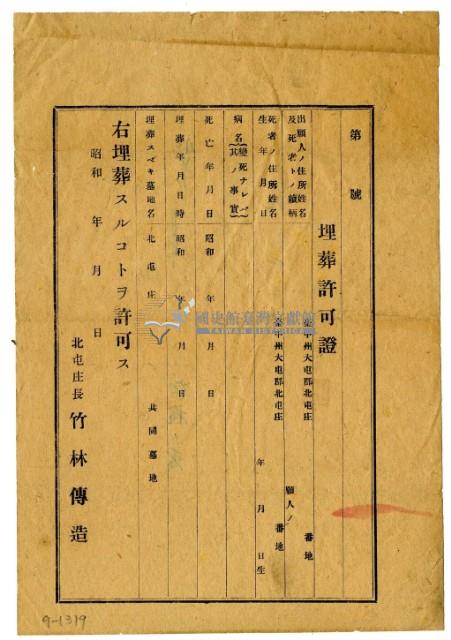 第　號
埋葬許可證
出願人ノ住所姓名
及死者トノ續柄
臺中州大屯郡北屯庄　番地
願人ノ
死者ノ住所姓名
生年月日
臺中州大屯郡北屯庄　番地
年　月　日生
病名
變死ナレバ
其ノ事實
死亡年月日　昭和　年　月　日
埋葬年月日時　昭和　年　月　日
埋葬スベキ墓地名　北屯庄　共同墓地
右埋葬スルコトヲ許可ス
昭和　年　月　日
北屯庄長　竹林傳造
國史館臺灣文獻館
TAIWAN HISTORICA
9-1319